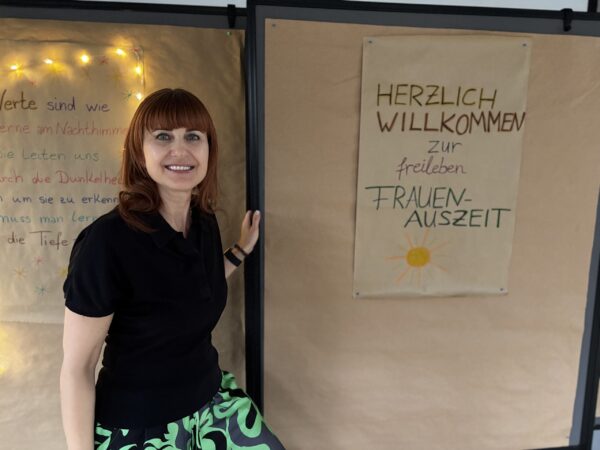 Werte sind wie
am Nachthimmel
Sie Leiten uns
durch die Dunkelheit
um sie zu erkennen
muss man lernen
die Tiefe
HERZLICH
WILLKOMMEN
zur
freileben
FRAUEN-
AUSZEIT